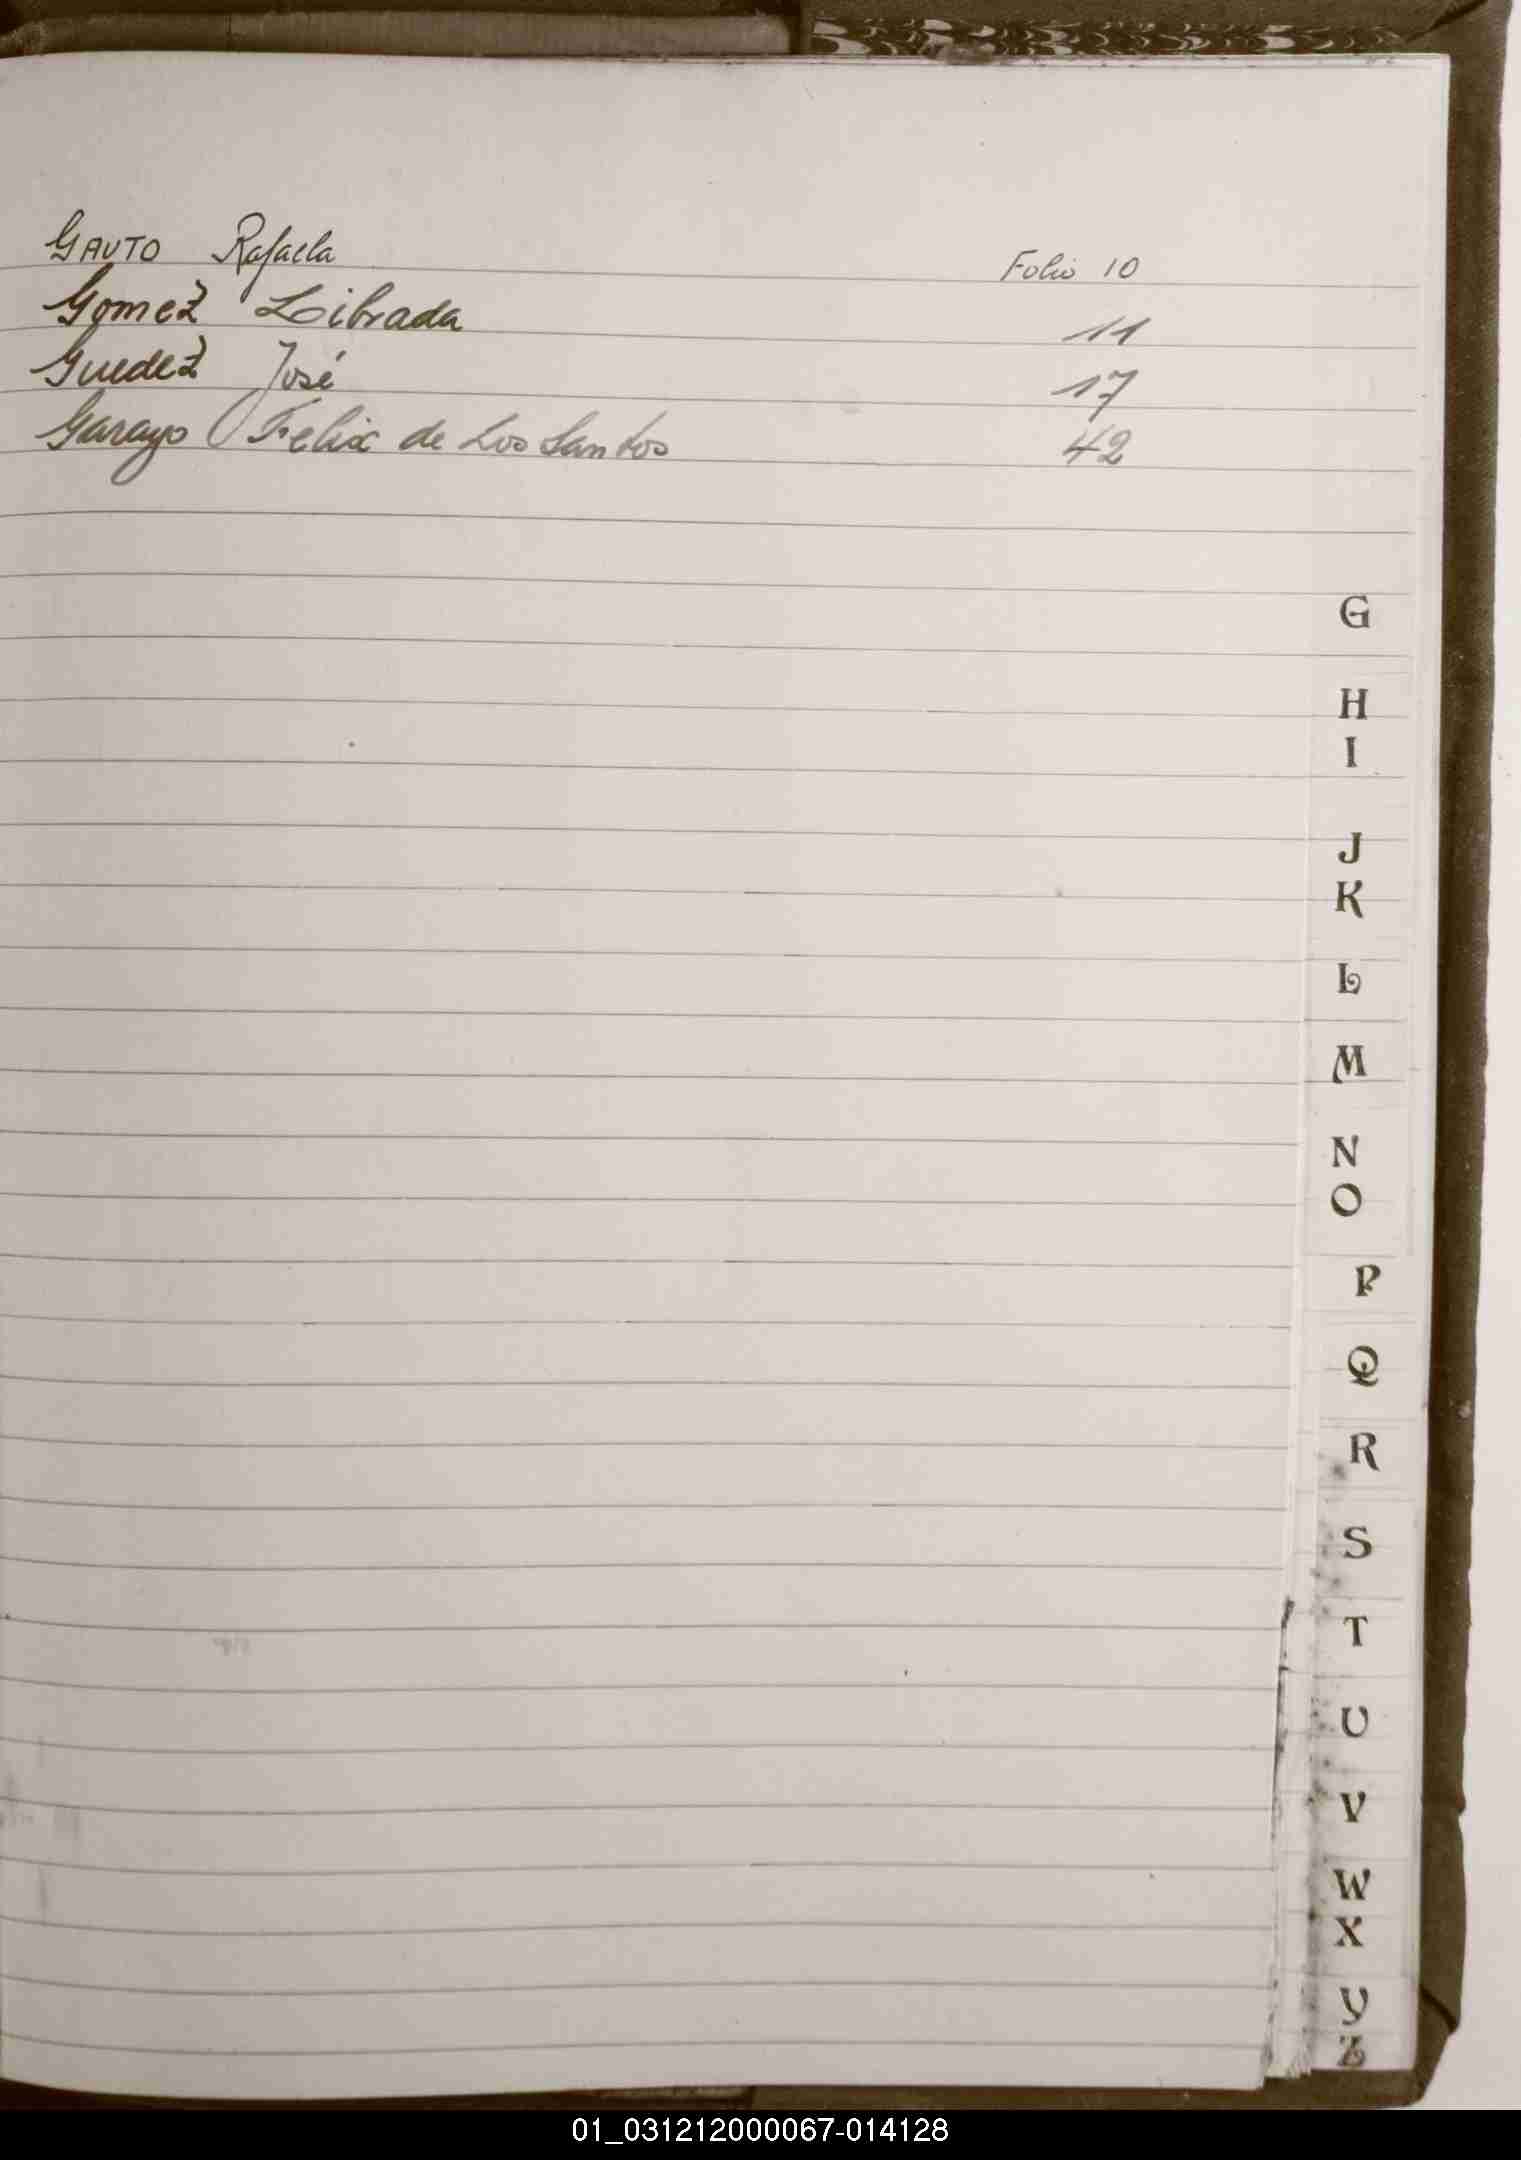 GAUTO Rafaela Folio 10
Gomez Librada 11
Guedez José 17
Garayo Felix de Los Santos 42
G
H
I
J
K
L
M
N
O
P
Q
R
S
T
U
V
W
X
Y
Z
01_031212000067-014128